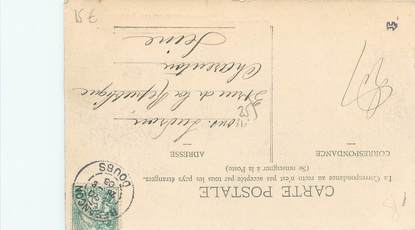 CARTE POSTALE
La Correspondance au recto n'est pas acceptée par tous les pays étrangers.
(Se renseigner à la Poste)
CORRESPONDANCE
ADRESSE
rue de la République
Charenton
Seine
BESANÇON
DOUBS